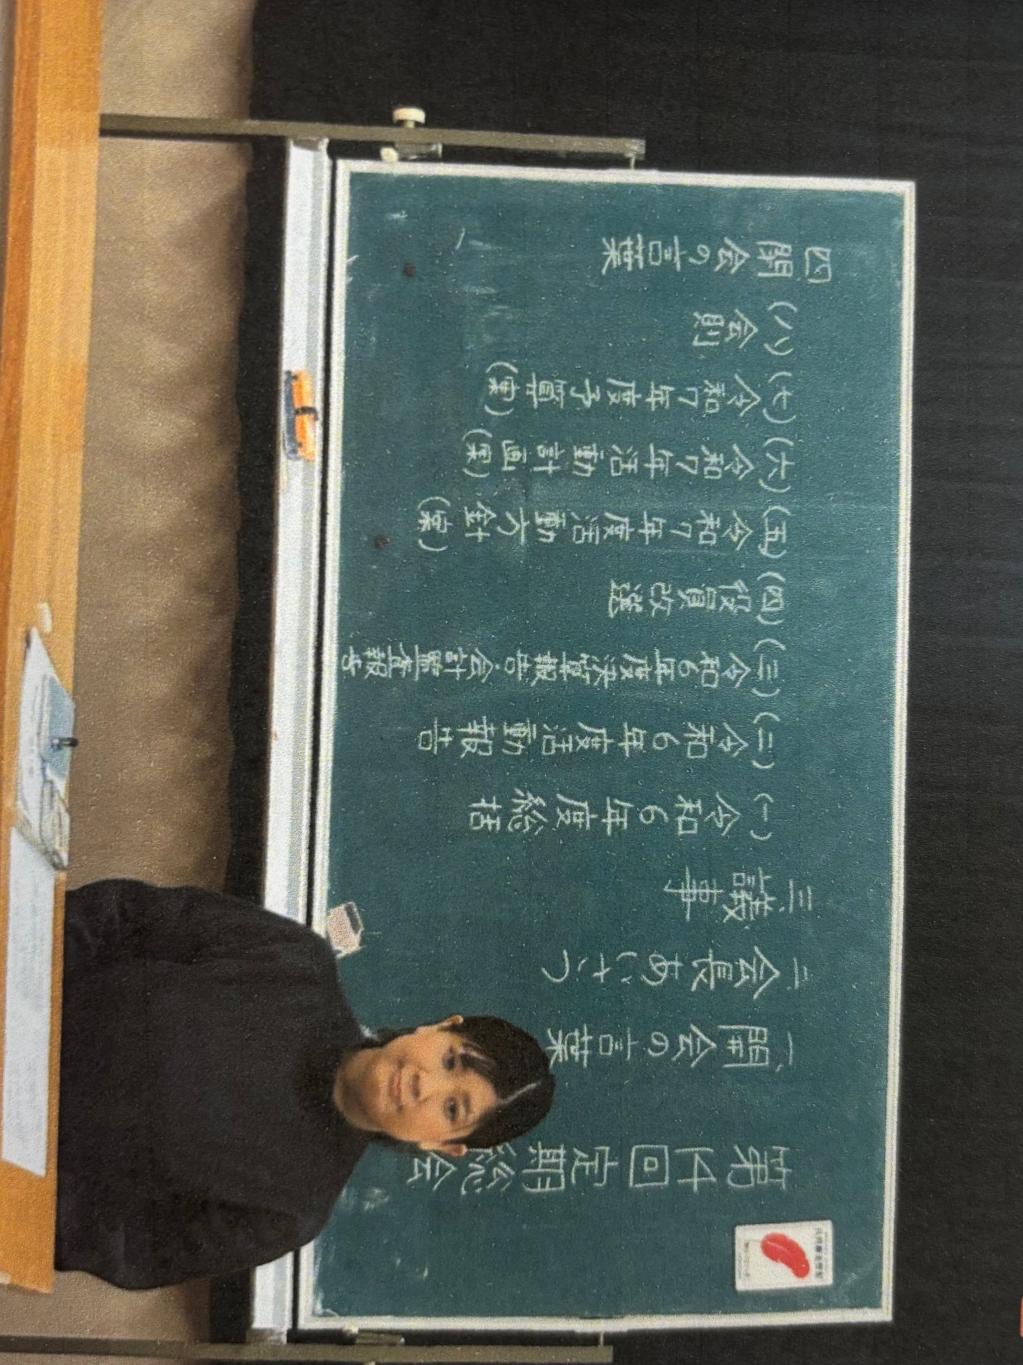 第廿回定期総会
一、開会の言葉
二会長あいさつ
三議事
(一)令和6年度総括
(二)令和6年度活動報告
(三)令和6年度決算報告・会計監査報告
(四)役員改選
(五)令和7年度活動方針(案)
(六)令和7年活動計画(案)
(七)令和7年度予算(案)
(八)会則
四閉会の言葉